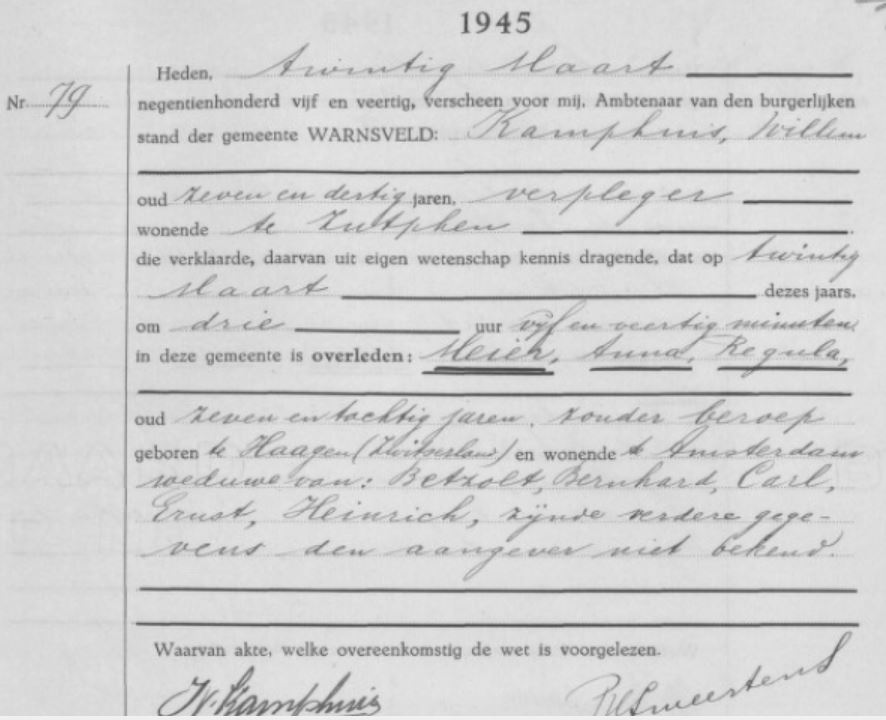 1945
Heden, twintig Maart
Nr. 79
negentienhonderd vijf en veertig, verscheen voor mij, Ambtenaar van den burgerlijken
stand der gemeente WARNSVELD: Kamphuis, Willem
oud zeven en dertig jaren, verpleger
wonende te Zutphen
die verklaarde, daarvan uit eigen wetenschap kennis dragende, dat op twintig
Maart dezes jaars,
om drie uur vijf en veertig minuten
in deze gemeente is overleden: Meier, Anna, Regula,
oud zeven en tachtig jaren, zonder beroep
geboren te Haagen (Zwitserland) en wonende te Amsterdam
weduwe van: Betzolt, Bernhard, Carl,
Ernst, Heinrich, zijnde verdere gege-
vens den aangever niet bekend.
Waarvan akte, welke overeenkomstig de wet is voorgelezen.
W. Kamphuis